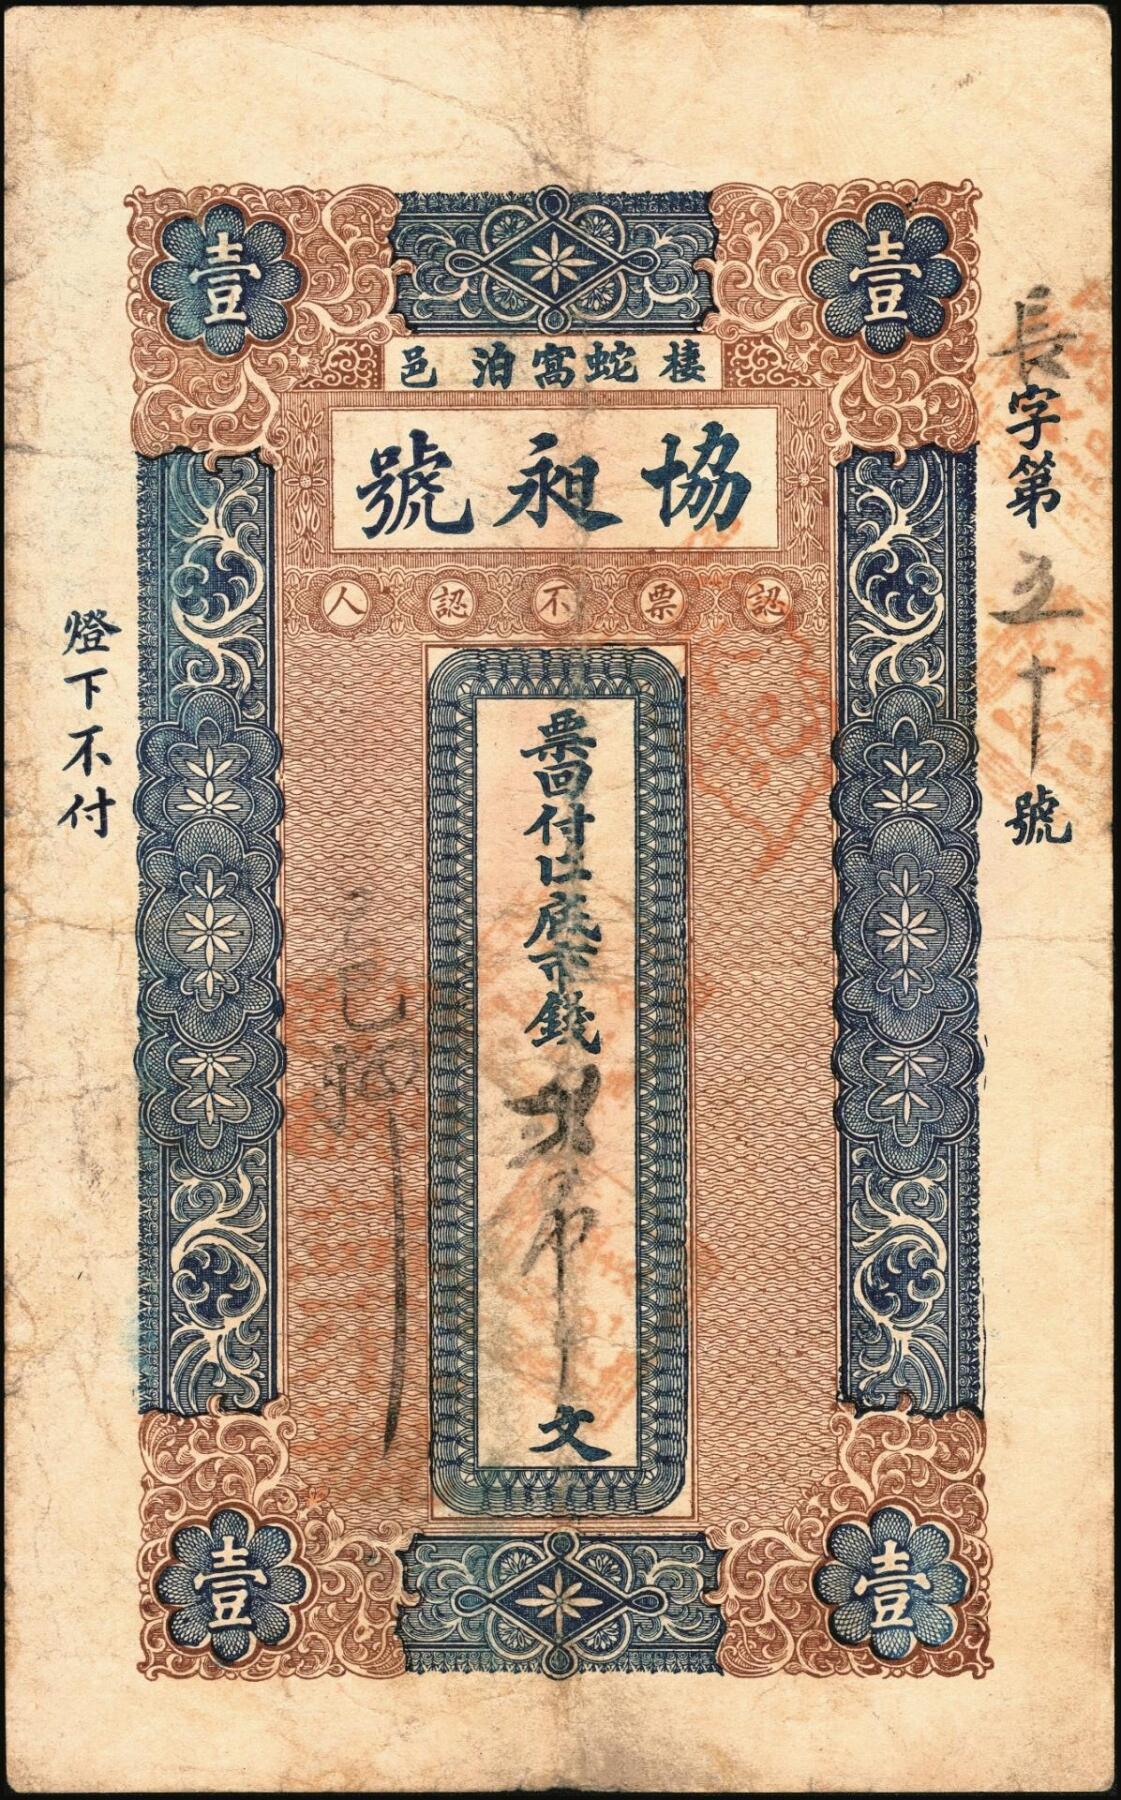 壹 壹
棲蛇窩泊邑
協昶號
認票不認人
長字第五十號
票回付底市錢貳吊文
燈下不付
壹 壹